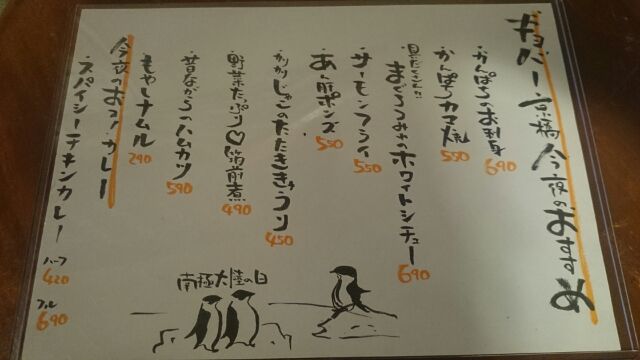 ギョバー高橋 今夜のおすすめ
・かんぱちのお刺身 690
・かんぱちカマ焼 550
具だくさん!!
・まぐろつみれのホワイトシチュー 690
・サーモンフライ 550
・あん肝ポンズ 550
・カリカリじゃこのたたききゅうり 450
・野菜たっぷり♡筑前煮 490
・昔ながらのハムカツ 590
・もやしナムル 290
今夜のおつカレー
・スパイシーチキンカレー
ハーフ 420
フル 690
南極大陸の日